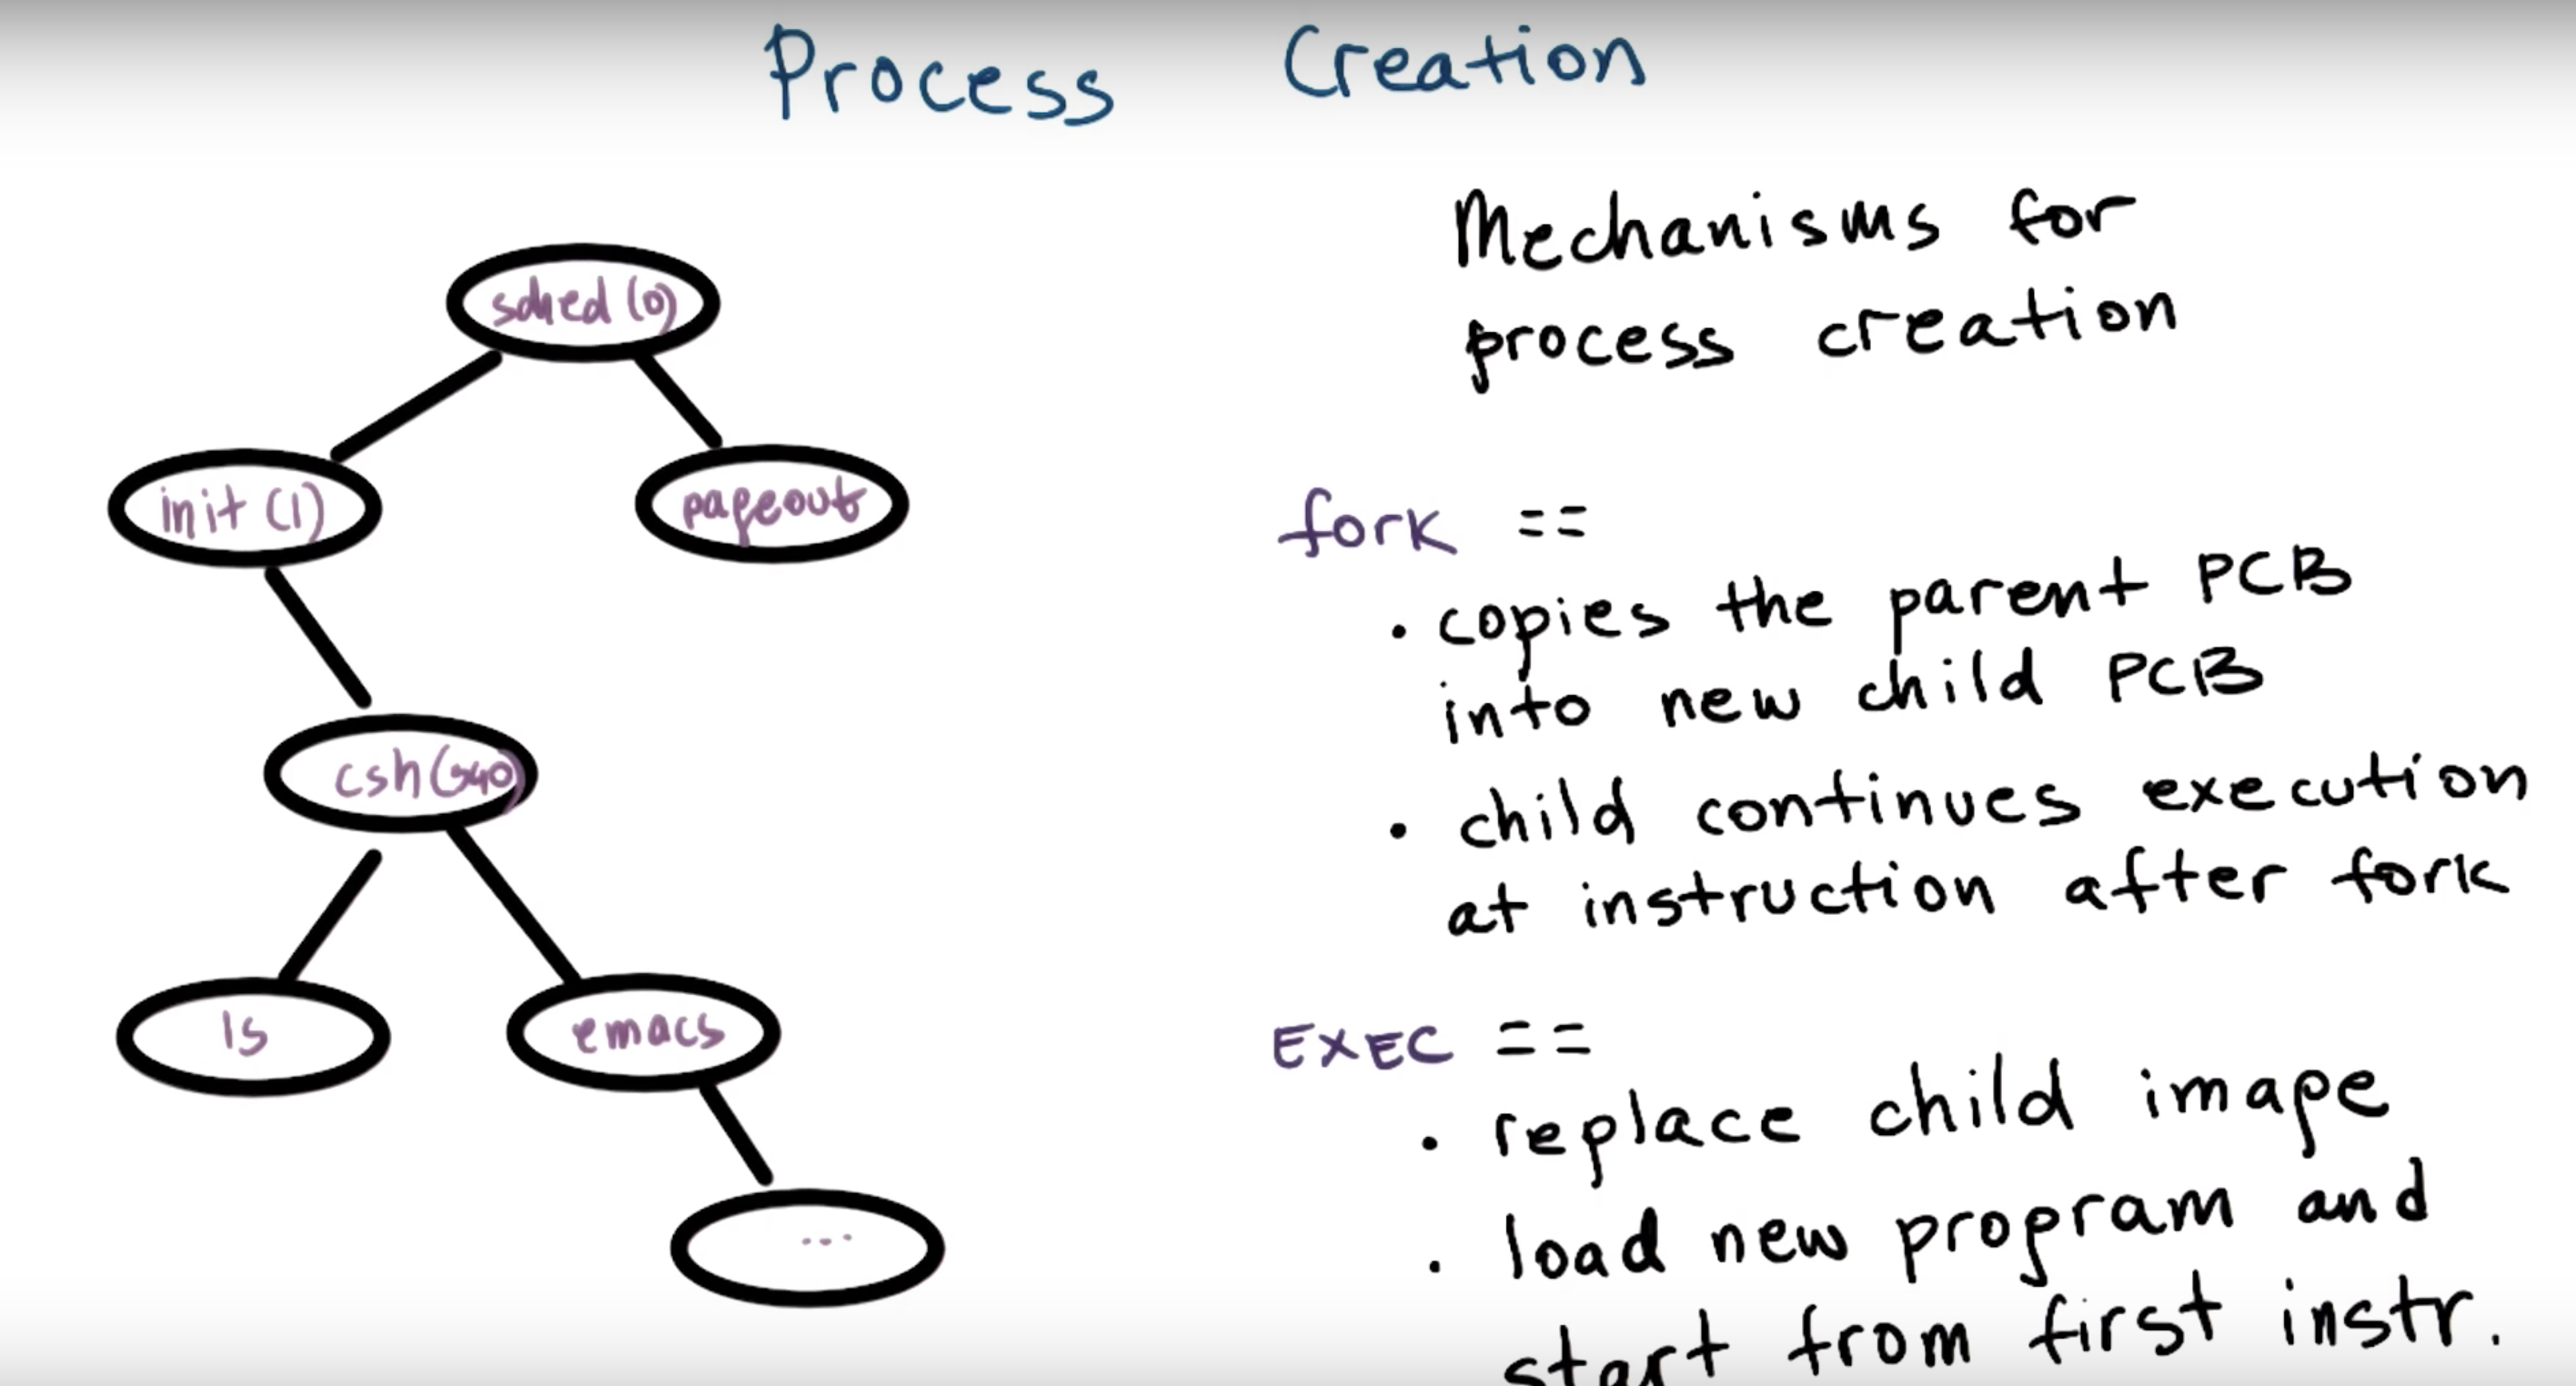 Process Creation
sched (0)
init (1)
pageout
csh (340)
ls
emacs
...
Mechanisms for
process creation
fork ==
• copies the parent PCB
into new child PCB
• child continues execution
at instruction after fork
EXEC ==
• replace child image
• load new program and
start from first instr.